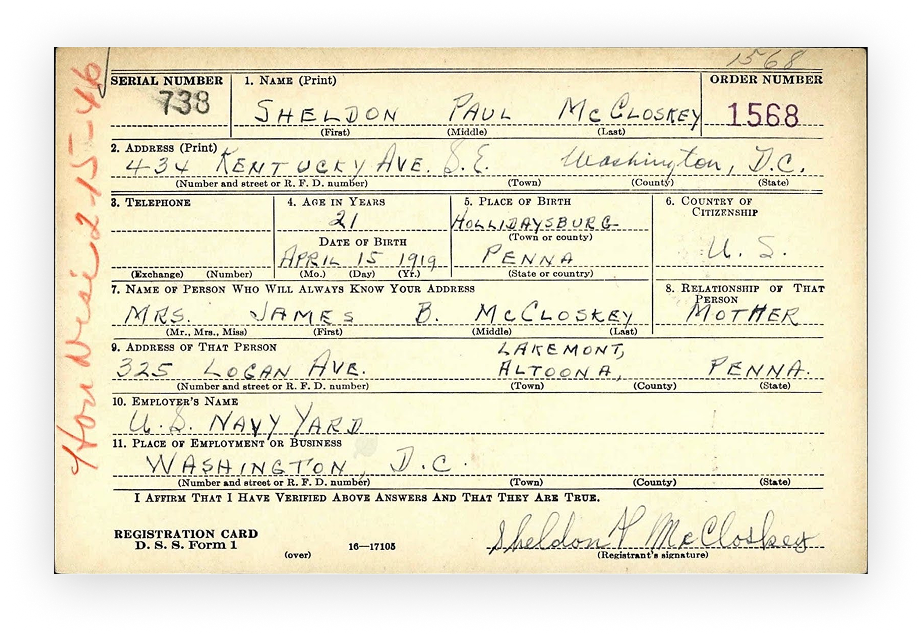 1568
SERIAL NUMBER 1. NAME (Print) ORDER NUMBER
738 SHELDON PAUL McCLOSKEY 1568
(First) (Middle) (Last)
2. ADDRESS (Print)
434 KENTUCKY AVE. S.E. Washington, D.C.
(Number and street or R. F. D. number) (Town) (County) (State)
3. TELEPHONE 4. AGE IN YEARS 5. PLACE OF BIRTH 6. COUNTRY OF CITIZENSHIP
21 HOLLIDAYSBURG
DATE OF BIRTH (Town or county)
APRIL 15 1919 PENNA U. S.
(Exchange) (Number) (Mo.) (Day) (Yr.) (State or country)
7. NAME OF PERSON WHO WILL ALWAYS KNOW YOUR ADDRESS 8. RELATIONSHIP OF THAT PERSON
MRS. JAMES B. McCLOSKEY MOTHER
(Mr., Mrs., Miss) (First) (Middle) (Last)
9. ADDRESS OF THAT PERSON LAKEMONT,
325 LOGAN AVE. ALTOONA, PENNA.
(Number and street or R. F. D. number) (Town) (County) (State)
10. EMPLOYER'S NAME
U. S. NAVY YARD
11. PLACE OF EMPLOYMENT OR BUSINESS
WASHINGTON, D.C.
(Number and street or R. F. D. number) (Town) (County) (State)
I AFFIRM THAT I HAVE VERIFIED ABOVE ANSWERS AND THAT THEY ARE TRUE.
REGISTRATION CARD
D. S. S. Form 1 Sheldon P McCloskey
(over) 16—17105 (Registrant's signature)
2-15-46